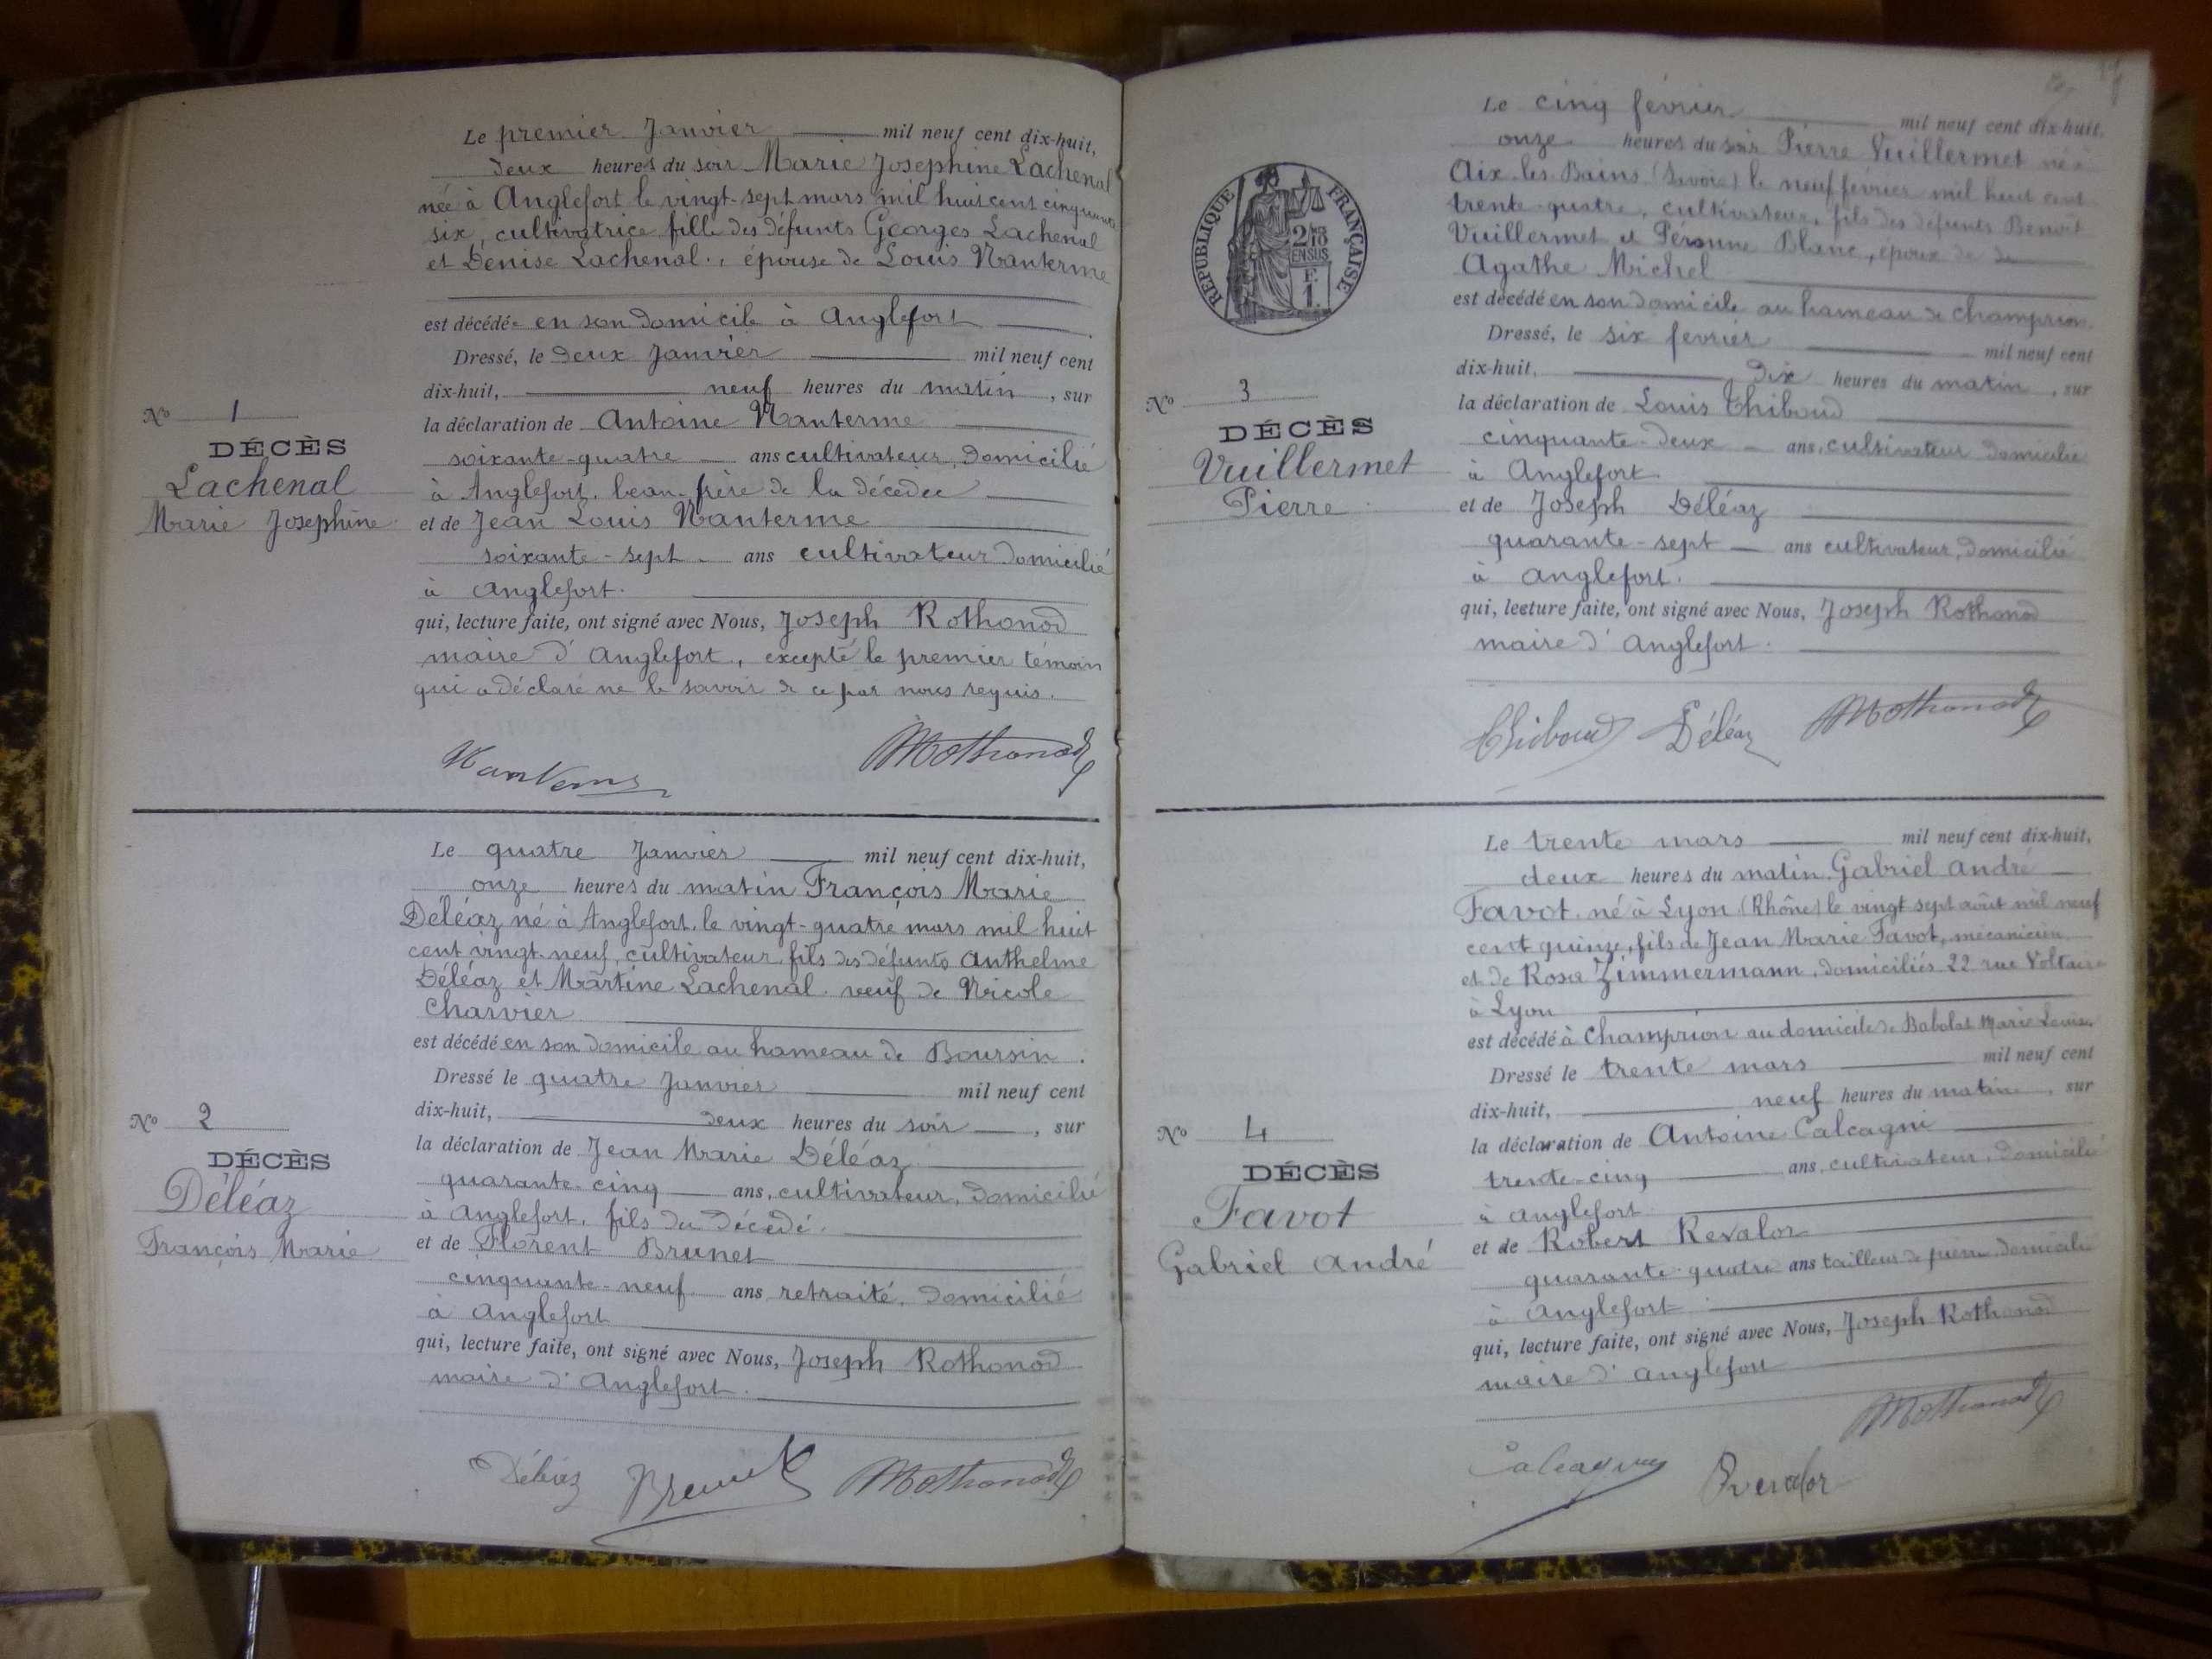 Le premier Janvier mil neuf cent dix-huit,
deux heures du soir Marie Josephine Lachenal
née à Anglefort le vingt-sept mars mil huit cent cinquante
six, cultivatrice fille des défunts Georges Lachenal
et Denise Lachenal, épouse de Louis Nanterme
est décédée en son domicile à Anglefort
Dressé, le deux Janvier mil neuf cent
dix-huit, neuf heures du matin, sur
la déclaration de Antoine Nanterme
soixante-quatre ans cultivateur, domicilié
à Anglefort, beau-frère de la décédée
et de Jean Louis Nanterme
soixante-sept ans cultivateur domicilié
à Anglefort.
qui, lecture faite, ont signé avec Nous, Joseph Rothonod
maire d'Anglefort, excepté le premier témoin
qui a déclaré ne le savoir de ce par nous requis.
Nº 1
DÉCÈS
Lachenal
Marie Josephine
Nanterme Rothonod
Le quatre Janvier mil neuf cent dix-huit,
onze heures du matin François Marie
Déléaz, né à Anglefort, le vingt-quatre mars mil huit
cent vingt-neuf, cultivateur, fils des défunts Anthelme
Déléaz et Martine Lachenal, veuf de Nicole
Charvier
est décédé en son domicile au hameau de Boursin.
Dressé le quatre Janvier mil neuf cent
dix-huit, deux heures du soir, sur
la déclaration de Jean Marie Déléaz
quarante-cinq ans, cultivateur, domicilié
à Anglefort, fils du décédé.
et de Florent Brunet
cinquante-neuf ans retraité, domicilié
à Anglefort
qui, lecture faite, ont signé avec Nous, Joseph Rothonod
maire d'Anglefort.
Nº 2
DÉCÈS
Déléaz
François Marie
Déléaz Brunet Rothonod
Le cinq février mil neuf cent dix-huit,
onze heures du soir Pierre Vuillermet né à
Aix-les-Bains (Savoie) le neuf février mil huit cent
trente-quatre, cultivateur, fils des défunts Benoit
Vuillermet et Péronne Blanc, époux de de
Agathe Michel
est décédé en son domicile au hameau de Champrion.
Dressé, le six février mil neuf cent
dix-huit, dix heures du matin, sur
la déclaration de Louis Thiboud
cinquante-deux ans, cultivateur domicilié
à Anglefort
et de Joseph Déléaz
quarante-sept ans cultivateur, domicilié
à Anglefort.
qui, lecture faite, ont signé avec Nous, Joseph Rothonod
maire d'Anglefort.
RÉPUBLIQUE FRANÇAISE
2/10
EN SUS
F.
1.
Nº 3
DÉCÈS
Vuillermet
Pierre
Thiboud Déléaz Rothonod
Le trente mars mil neuf cent dix-huit,
deux heures du matin, Gabriel André
Favot, né à Lyon (Rhône) le vingt sept août mil neuf
cent quinze, fils de Jean Marie Favot, mécanicien
et de Rosa Zimmermann, domiciliés 22 rue Voltaire
à Lyon
est décédé à Champrion au domicile de Babolat Marie Louise.
Dressé le trente mars mil neuf cent
dix-huit, neuf heures du matin, sur
la déclaration de Antoine Calcagni
trente-cinq ans, cultivateur, domicilié
à Anglefort
et de Robert Revalor
quarante-quatre ans tailleur de pierre domicilié
à Anglefort
qui, lecture faite, ont signé avec Nous, Joseph Rothonod
maire d'Anglefort
Nº 4
DÉCÈS
Favot
Gabriel André
Calcagni Revalor Rothonod